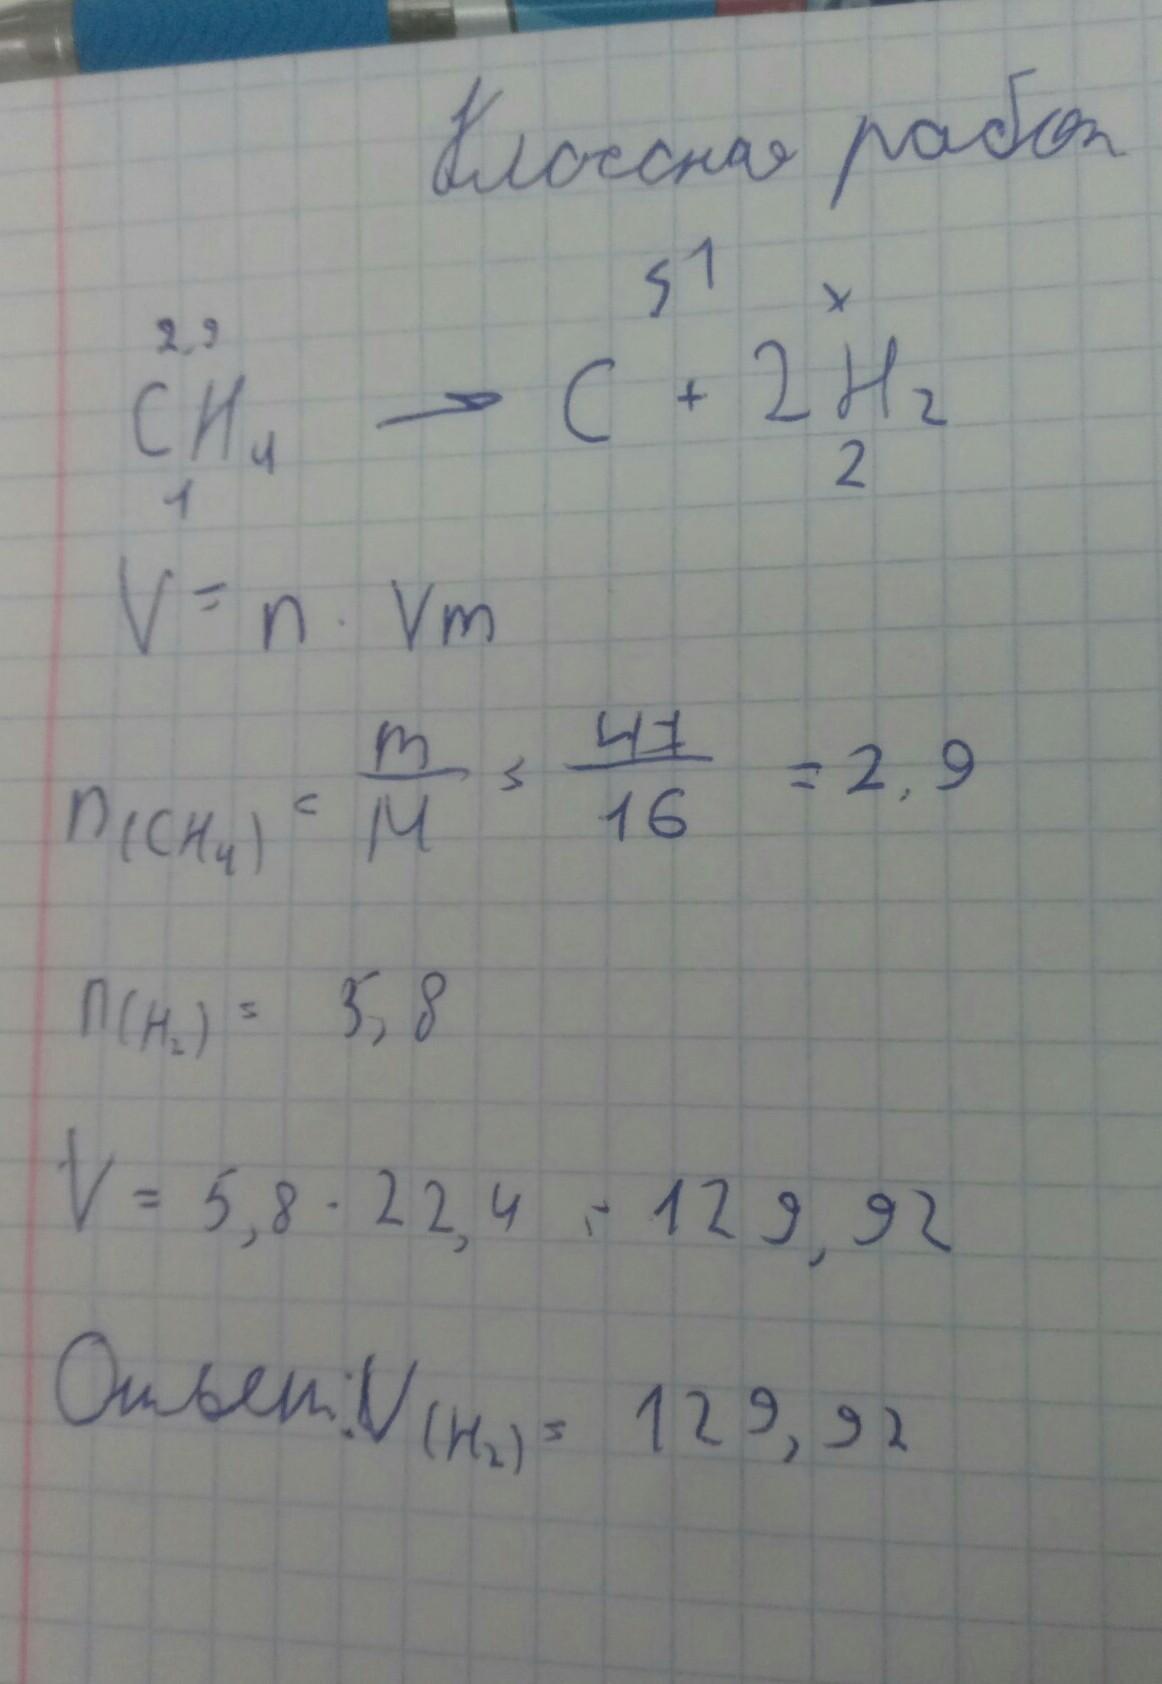 Классная работа
51 x
2,9
CH₄ → C + 2H₂
1 2
V = n · Vm
n(CH₄) = m/M = 47/16 = 2,9
n(H₂) = 5,8
V = 5,8 · 22,4 = 129,92
Ответ: V(H₂) = 129,92